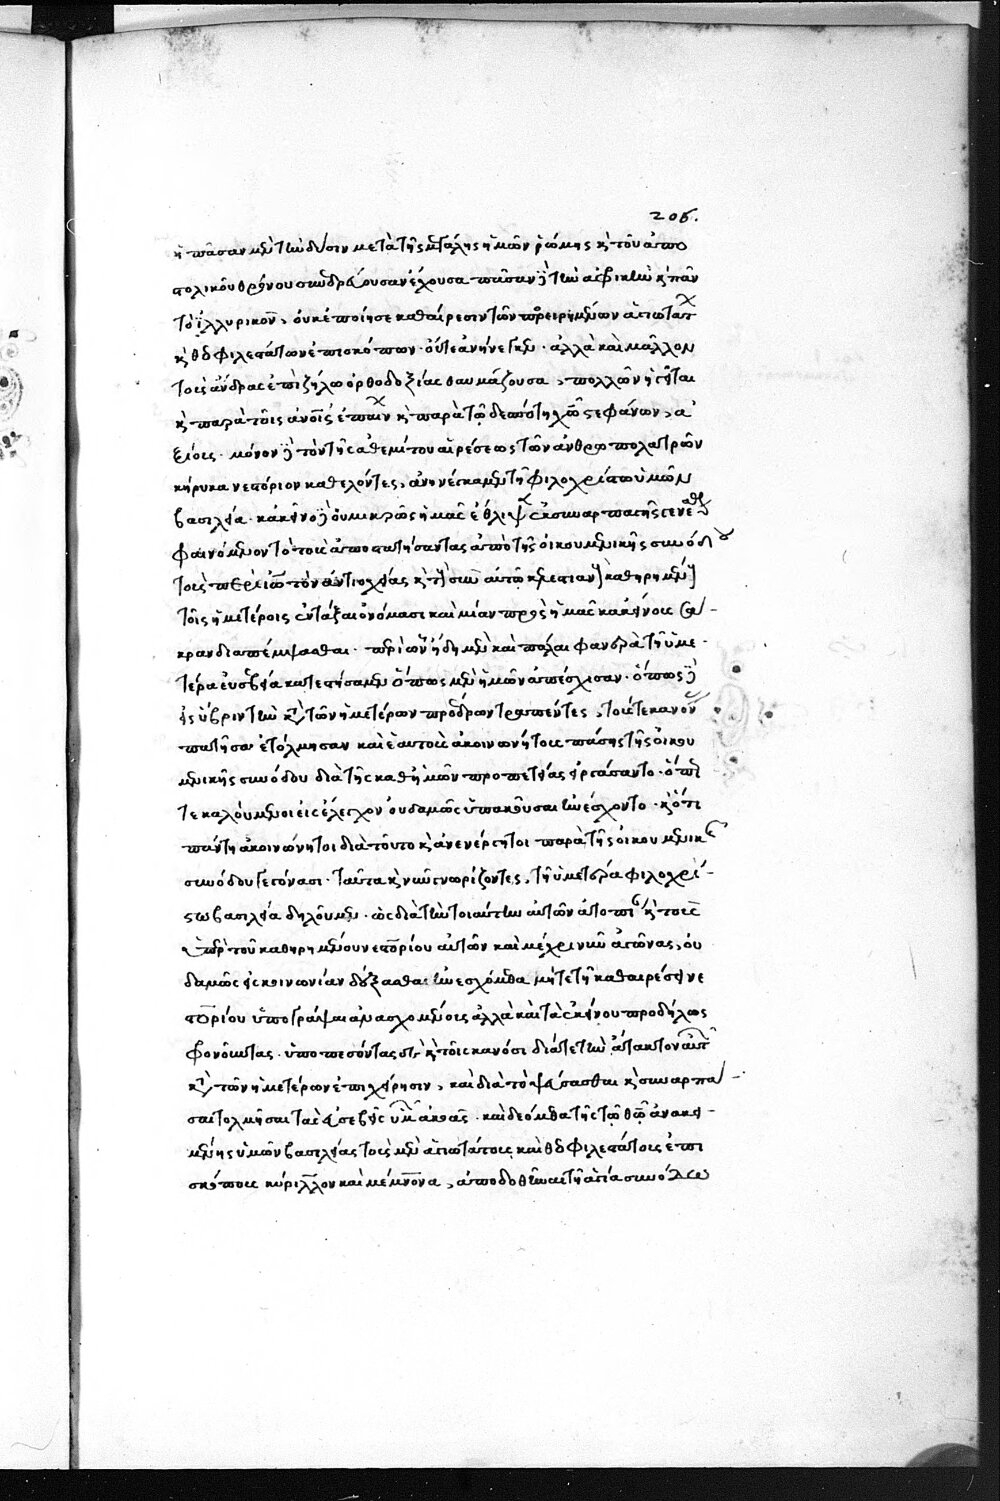 205.
ἡ πᾶσαν μὲν τὴν δύσιν μετὰ τῆς μεγάλης ἡμῶν ῥώμης κ̀ τοῦ ἀπο
στολικοῦ θρόνου συνεδρεύουσαν ἔχουσα πᾶσαν δὲ τὴν ἀφρικὴν κ̀ πᾶν
τὸ ἰλλυρικὸν, οὐκ ἐποίησε καθαίρεσιν τῶν προειρημένων ἁγιωτάτ
κ̀ θεοφιλεστάτων ἐπισκόπων· οὔτε ἀνήνεγκεν· ἀλλὰ καὶ μᾶλλον
τοὺς ἄνδρας ἐπὶ ζήλω ὀρθοδοξίας θαυμάζουσα, πολλῶν ἡγεῖται
κ̀ παρὰ τοῖς ἀνοις ἐπαίν κ̀ παρὰ τῶ δεσπότη χῶ στεφάνων, ἀ
ξίους· μόνον δὲ τὸν τῆς ἀθεμίτου αἱρέσεως τῶν ἀνθρωπολατρῶν
κήρυκα νεστόριον καθελόντες, ἀνηνέγκαμεν τῆ φιλοχρίστω ὑμῶν
βασιλεία· κἀκεῖνο δὲ οὐ μικρῶς ἡμᾶς ἔθλιψ ἐκ συναρπαγῆς γενεθ
φαινόμενον τὸ τοὺς ἀποστατήσαντας ἀπὸ τῆς οἰκουμενικῆς συνόδου
τοὺς περὶ ἰω τὸν ἀντιοχείας κ̀ τ σὺν αὐτῶ κελεστιαν καθηρημέν
τοῖς ἡμετέροις ἐντάξαι ὀνόμασι καὶ μίαν πρὸς ἡμᾶς κἀκείνους σά-
κραν διαπέμψασθαι· περὶ ὧν ἤδη μὲν καὶ πάλαι φανερὰ τῆ ὑμε
τέρα εὐσεβεία κατεστήσαμεν ὅπως μὲν ἡμῶν ἀπέσχισαν· ὅπως δὲ
εἰς ὕβριν τὴν κατὰ τῶν ἡμετέρων προέδρων τραπέντες, τούς τε κανον
πατῆσαι ἐτόλμησαν καὶ ἑαυτοὺς ἀκοινωνήτους πάσης τῆς οἰκου
μενικῆς συνόδου διὰ τῆς καθ' ἡμῶν προπετείας εἰργάσαντο· ὅτι
τε καλούμενοι εἰς ἔλεγχον οὐδαμῶς ὑπακοῦσαι ἠνέσχοντο· κ̀ ὅτι
πάντη ἀκοινώνητοι διὰ τοῦτο κ̀ ἀνενέργητοι παρὰ τῆς οἰκουμενικ
συνόδου γεγόνασι· ταῦτα κ̀ νῦν γνωρίζοντες, τῆ ὑμετέρα φιλοχρί-
στω βασιλεία δηλοῦμεν· ὡς διὰ τὴν τοιαύτην αὐτῶν ἀτοπί κ̀ τοὺς
ὑπὲρ τοῦ καθηρημένου νεστορίου αὐτῶν καὶ μέχρι νῦν ἀγῶνας, οὐ
δαμῶς εἰς κοινωνίαν δέξασθαι ἠνεσχόμεθα μήτε τῆ καθαιρέσει νε
στορίου ὑπογράψαι ἀνασχομένοις ἀλλὰ καὶ τὰ ἐκείνου προδήλως
φρονοῦντας· ὑποπεσόντας δὲ κ̀ τοῖς κανόσι διά τε τὴν ἄτακτον αὐτ
κατὰ τῶν ἡμετέρων ἐπιχείρησιν, καὶ διὰ τὸ ψεύσασθαι κ̀ συναρπά-
σαι τολμῆσαι τὰς εὐσεβεῖς ὑμῶν ἀκοάς· καὶ δεόμεθα τῆς τῶ θῶ ἀνακει-
μένης ὑμῶν βασιλείας τοὺς μὲν ἁγιωτάτους καὶ θεοφιλεστάτους ἐπι
σκόπους κύριλλον καὶ μέμνονα, ἀποδοθῆναι τῆ ἁγία συνόδω